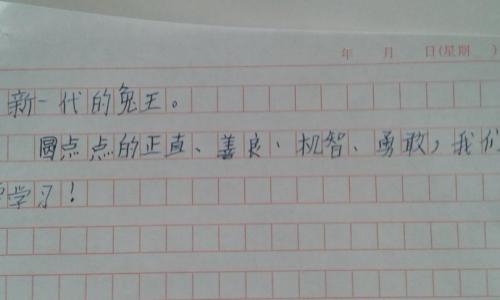 年 月 日(星期 )
新一代的兔王。
圆点点的正直、善良、机智、勇敢，我们
学习！